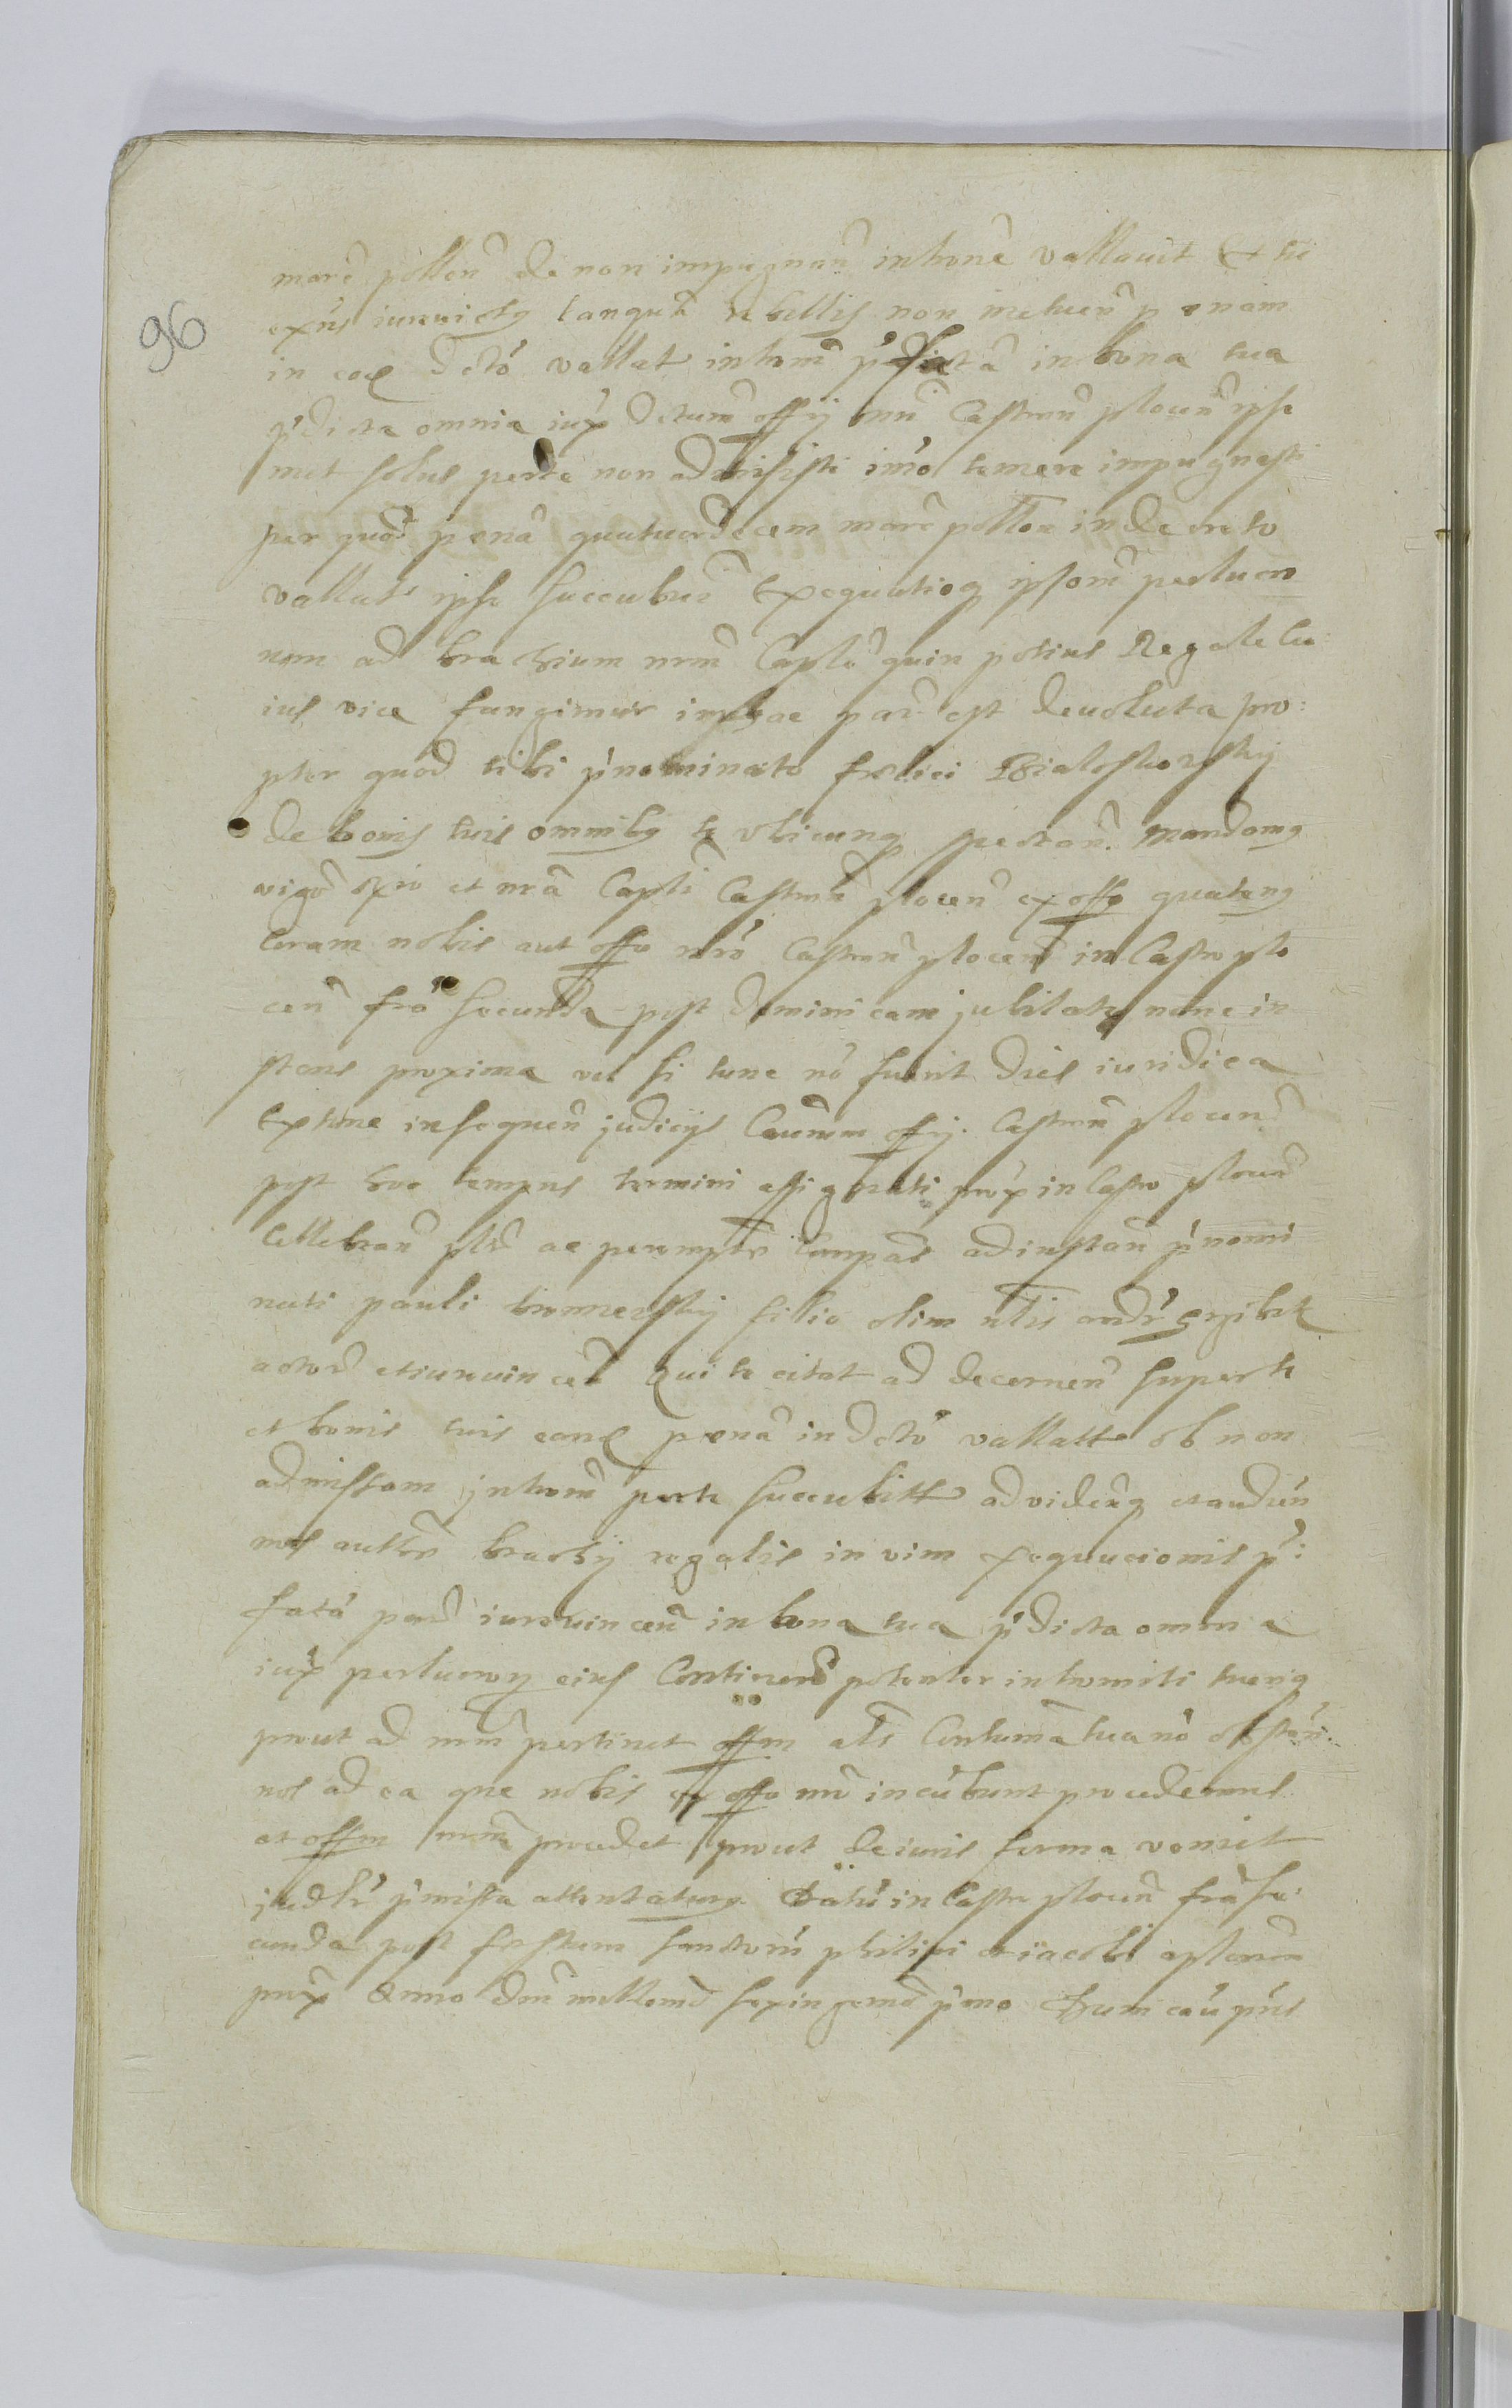 96
marc pollon de non impugnan intron vallavit Et tu
iurevictus tanquā rebellis non metuen penam
in eod Dcto vallat introm inbona tua
pdicta omnia iux Dctum offy nri Castren plocen ipse
met solus per te non admisisti imo temere impugnasti
per quod penā quatuordecem marc pollon in decreto
vallat ipse succubui Exequutioq ipsom perlucro
rum ad brachium nrm Captle quin potius Regale Cu:
ius vice fungimur in hac par est devoluta pro:
pter quod tibi pnominato felici Bialoskorsky
de bonis tuis omnibq et vbicunq Mandamq
et nrā Captli Castren plocen ex offo quatenq
Coram nobis aut offo nro Castren plocen in Castro plo
cen fra secunda post Dominicam jubilate nunc in
stans proxima vel si tunc nō fuerit dies iuridica
Extunc in sequen judicijs Caurum offy Castren plocen
post hoc tempus termini assignati prox in Castro plocen
Cellebran pltr ac peremptr compas ad instan pnomi
nati pauli filio olim nlis andr
actor et iurevincen Qui te citat ad decernen super te
et bonis tuis eand penā in Dcto vallatt ob non
admissam introm per te succubitt ad videnq et audien
nos autte brachy regalis in vim exequucionis p:
fatā par iurevincen in bona tua pdicta omnia
iux perlucrorq eius Continen potenter intromitti tuerq
prout ad nrm pertinet offm als Contuma tua nō obstan
nos ad ea que nobis ex offo nro incūbunt procedemus
et offm nrm procedet prout de iuris forma venit
judlr pmissa attentaturq Datū in Castro plocen fra se:
cunda post festum sanctorū philipi et iacobi aplorum
prox Anno Dni millemo sexingemo pmo Cum caū pns